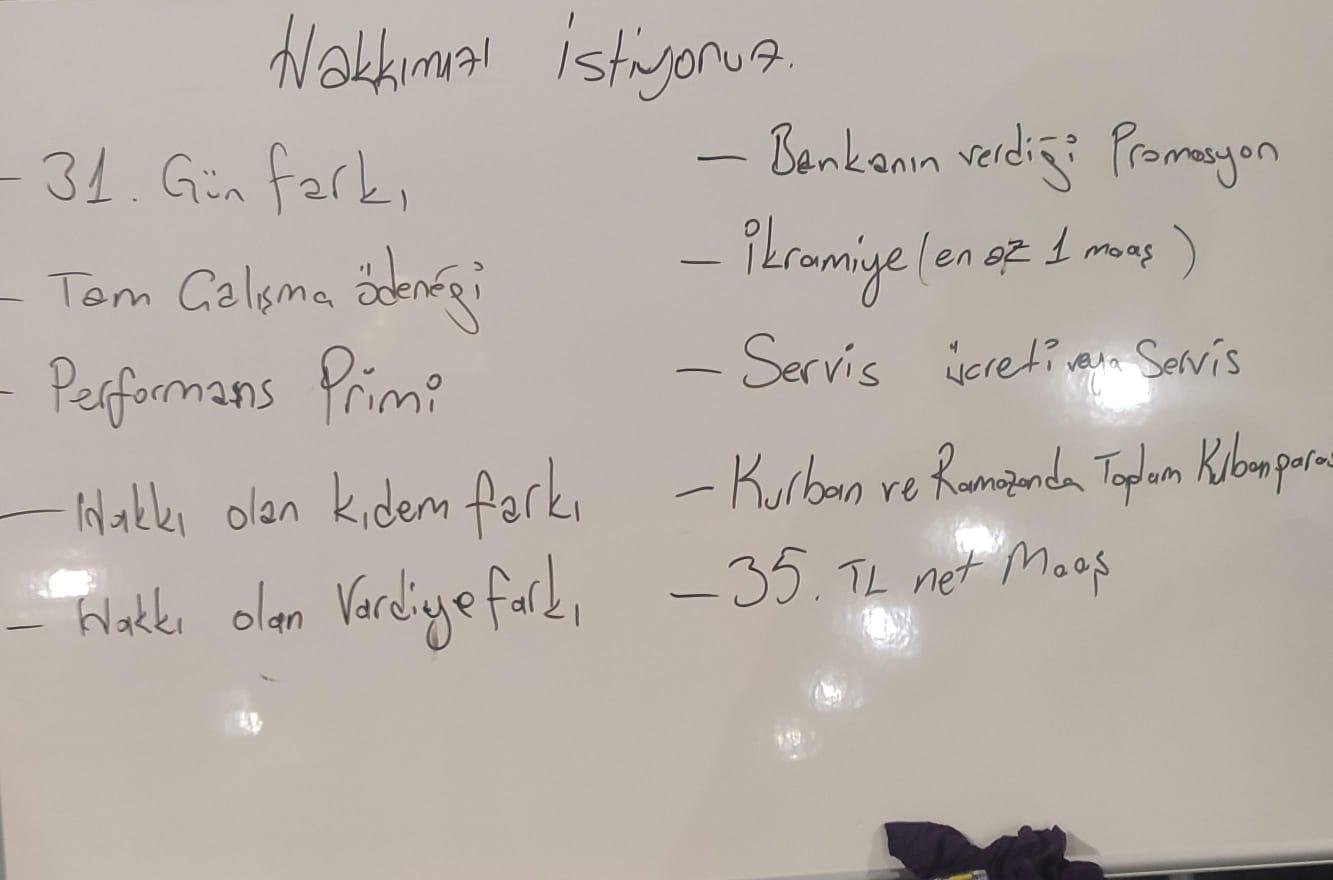 Hakkımızı istiyoruz.
- 31. Gün farkı
- Tam Çalışma ödeneği
- Performans Primi
- Hakkı olan kıdem farkı
- Hakkı olan Vardiye farkı
- Bankanın verdiği Promosyon
- İkramiye (en az 1 maaş)
- Servis ücreti veya Servis
- Kurban ve Ramazanda Toplam
- 35. TL net Maaş